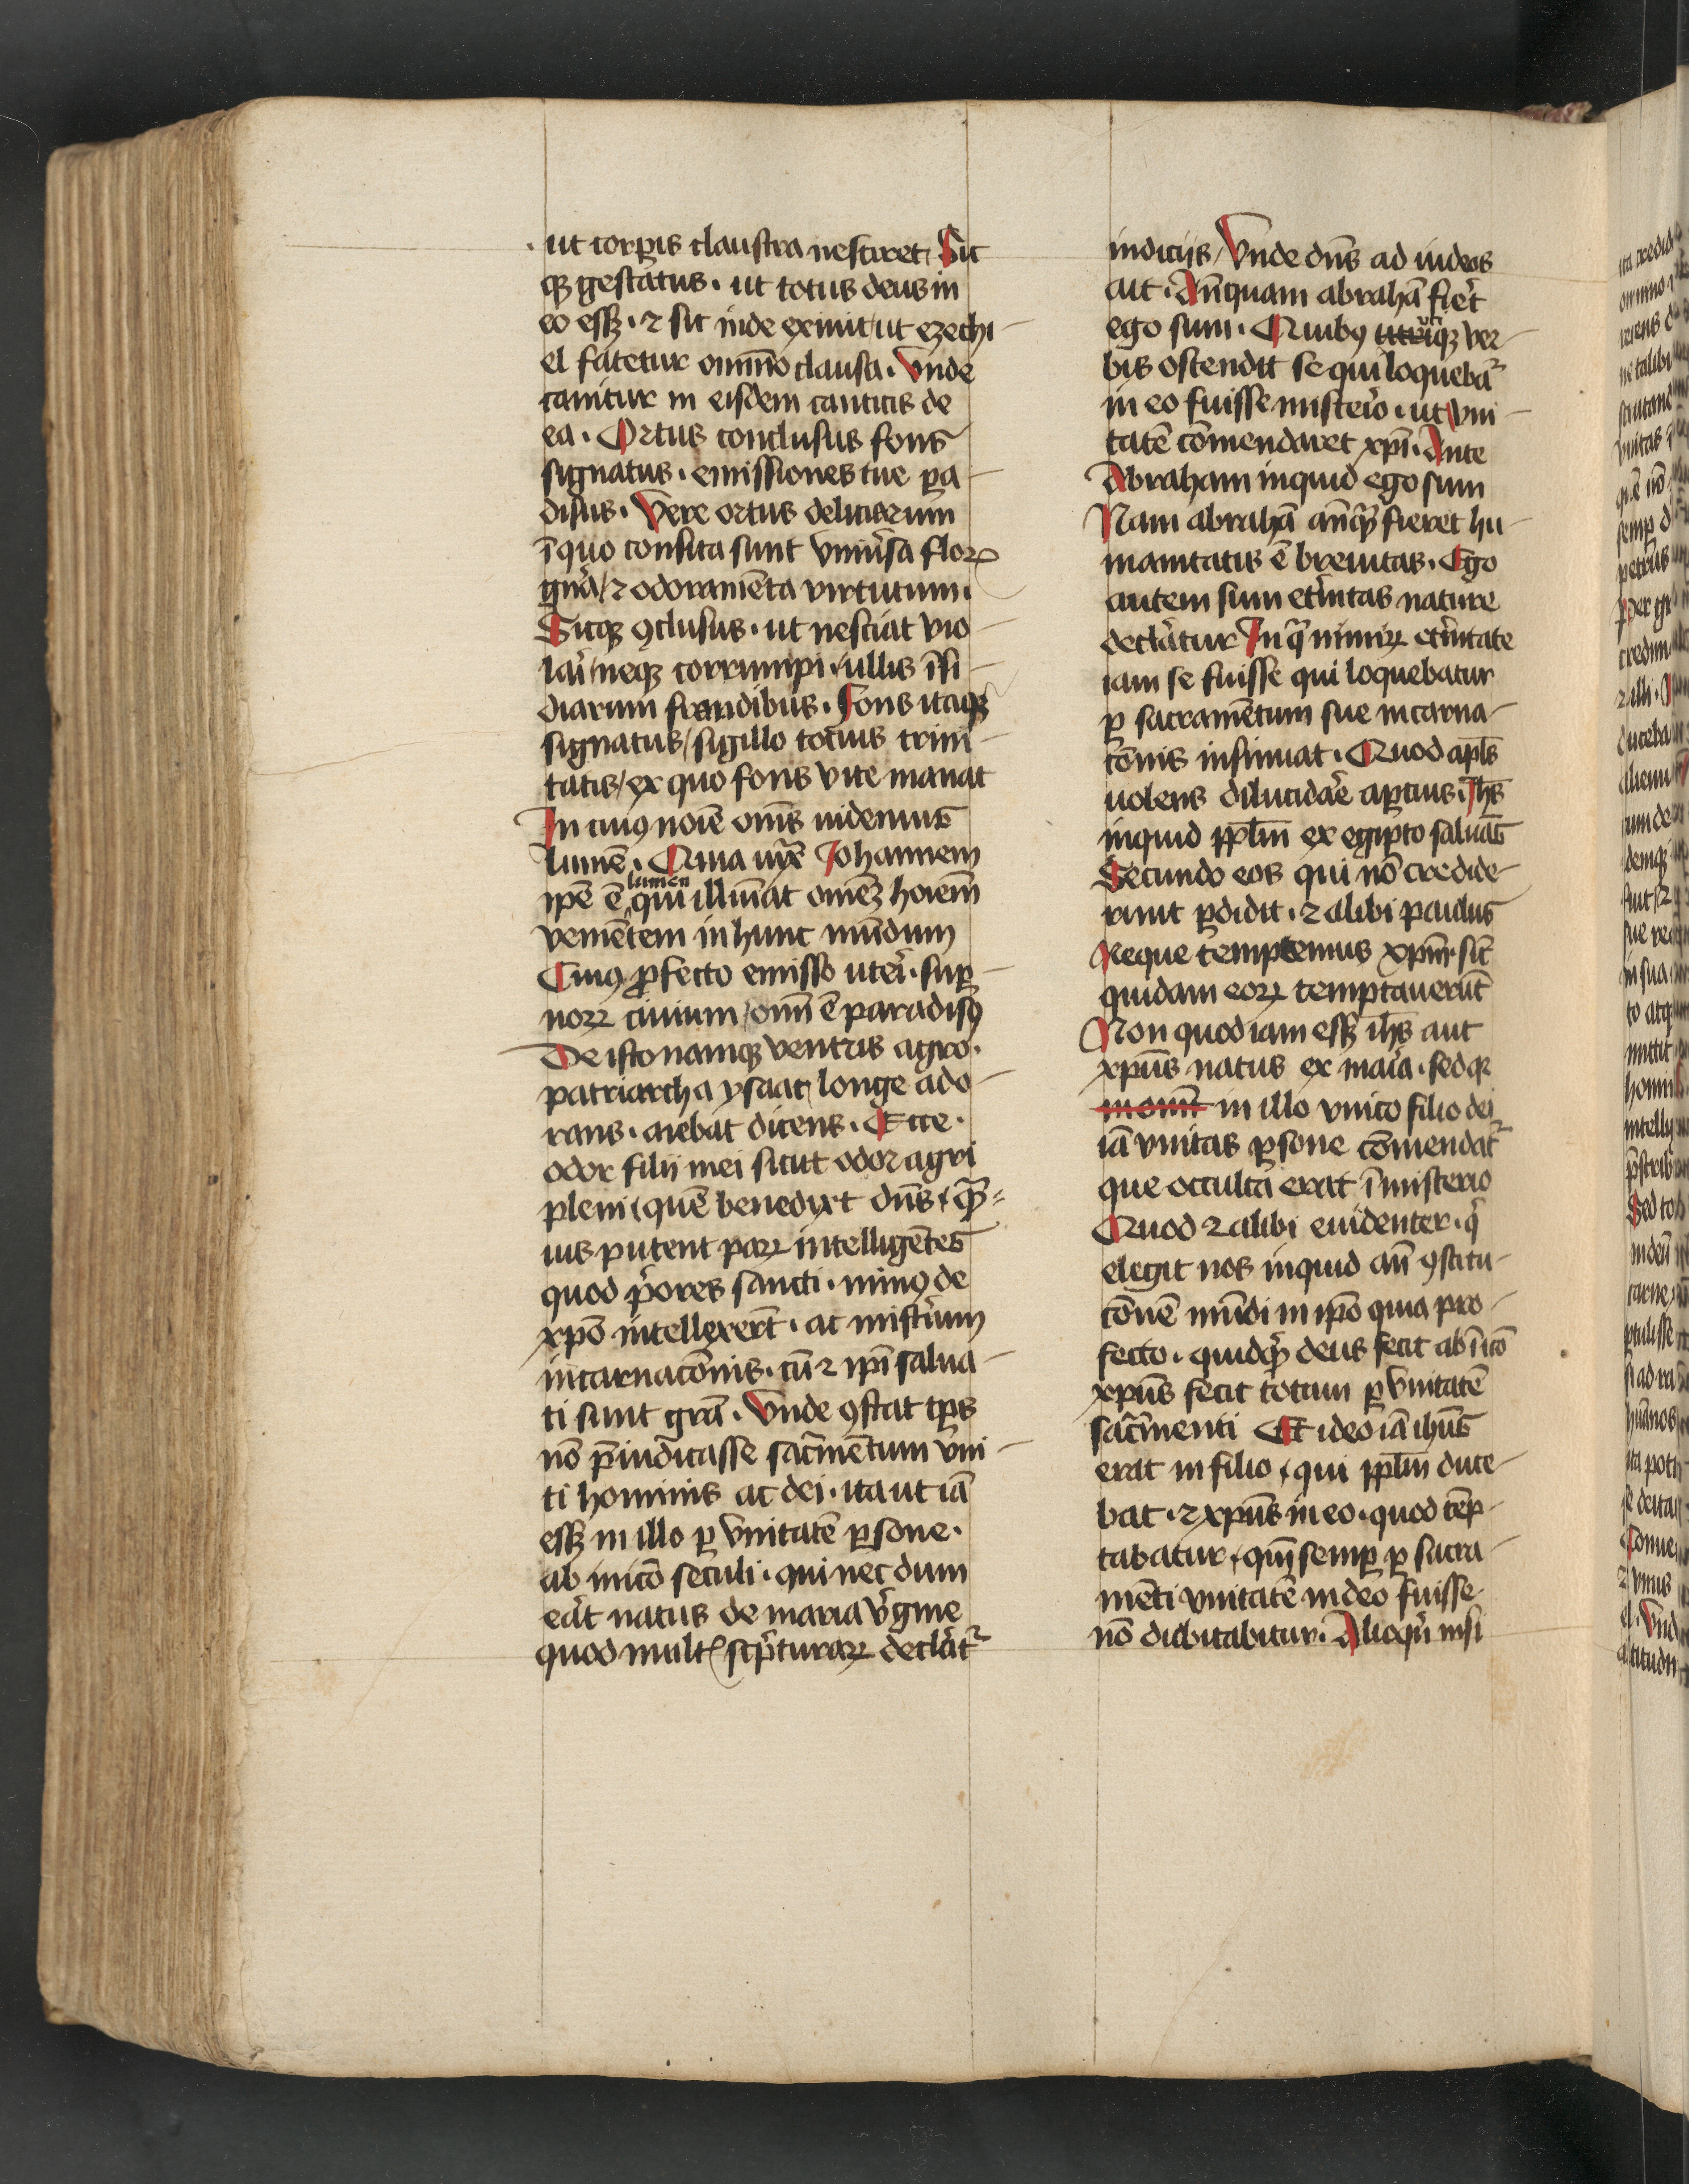 ut corꝑis claustra nesciret / Sic
qꝫ gestatus · ut totus deus in
eo essꝫ · ⁊ sic inde exiuit / ut ezechi-
el fatetur omnīo clausa · Vnde
canitur in eisdem canticis de
ea · Ortus conclusus fons
signatus · emissiones tue ꝑa-
disus · Vere ortus deliciarum
ī quo consita sunt vniūsa floꝝ
gn̄a / ⁊ odoramēta virtutum ·
Sicqꝫ ꝯclusus · ut nesciat vio-
lari / neqꝫ corrumpi · ullis īsi-
diarum fraudibus · Fons itaqꝫ
signatus / sigillo tocius trini-
tatis / ex quo fons vite manat
In cuiꝰ noīe om̄s uidemus
lumē · Quia iux̄ Johannem
ip̄e ē lumen qui illuīat omēꝫ hoīem
veniētem in hunc mūdum
Cuiꝰ ꝓfecto emisso uteri · suꝑ-
noꝝ ciuium / om̄i ē paradisꝰ
De isto namqꝫ ventris agro ·
patriarcha ysaac / longe ado-
rans · aiebat dicens · Ecce ·
odor filij mei sicut odor agri
pleni / quē benedixt dn̄s / qͣ̄-
uis putent paꝝ intelligētes
quod p̄ores sancti · minꝰ de
xp̄o intellexer̄t · ac mist̄ium
incarnacōnis · cū ⁊ ip̄i salua-
ti sunt grā · Vnde ꝯstat tꝑs
nō p̄iudicasse sacͣmentum vni-
ti hominis ac dei · ita ut iā
essꝫ in illo ꝑ vnitatē ꝑsone ·
ab inicō seculi · qui nec dum
erāt natus de maria v̄gine
quod mult scp̄turaꝝ declāt᷑
indicijs / Vnde dn̄s ad iudeos
ait · An̄quam abrahā fier̄t
ego sum · Quibꝰ utriqꝫ ver-
bis ostendit se qui loquebat᷑
in eo fuisse misterio · ut vni-
tatē cōmendaret xp̄i · Ante
Abraham inquid ego sum
Nam abrahā an̄qͣ̄ fieret hu-
manitatis ē breuitas · Ego
autem sum et̄nitas nature
declāatur In qͣ nimiꝝ et̄nitate
iam se fuisse qui loquebatur
ꝑ sacramētum sue incarna-
cōnis insinuat · Quod apl̄s
uolens dilucidar̄e aꝑcius · Ih̄s
inquid ppl̄m ex egipto saluās
Secundo eos qui nō credide-
runt ꝑdidit · ⁊ alibi paulus
Neque temptemus xp̄m · sic̄
quidam eoꝝ temptauerūt
Non quod iam essꝫ ih̄s aut
xpūs natus ex maia · sed qꝛ
in illo vnico filio dei
iā vnitas ꝑsone cōmendat᷑
que occulta erat ī misterio
Quod ⁊ alibi euidenter · qͥ
elegit nos inquid an̄ ꝯstitu-
cōnē mūdi in ip̄o quia pro-
fecto · quidqͥd deus fecit ab īicō
xpūs fecit totum ꝑ vnitatē
sacͣmenti Et ideo iā ihūs
erat in filio / qui ppl̄m duce-
bat · ⁊ xpūs in eo · quod tēp-
tabatur / qm̄ semꝑ ꝑ sacra-
mēti vnitatē in deo fuisse
nō dubitabitur · Alioqͥn nisi